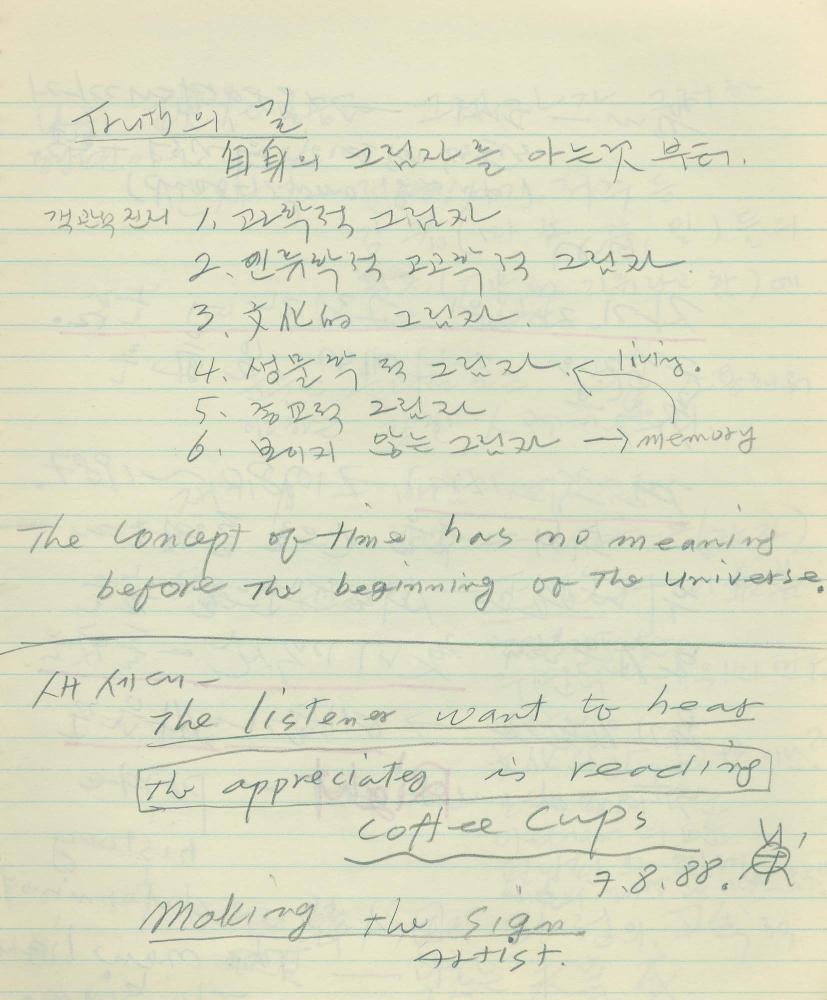 사내의 길
自身의 그림자를 아는것 부터.
1. 과학적 그림자
2. 인류학적 고고학적 그림자.
3. 文化的 그림자.
4. 생물학적 그림자. living.
5. 종교적 그림자
6. 보이지 않는 그림자 → memory
The concept of time has no meaning
before the beginning of the universe.
새 세대 -
The listener want to hear
the appreciates is reading
coffee cups
7.8.88.
Making the sign.
Artist.